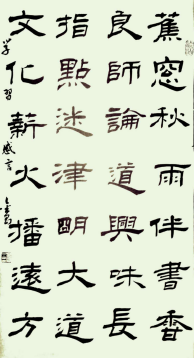 蕉窗秋雨伴書香
良師論道興味長
指點迷津明大道
文化薪火播遠方
学習感言